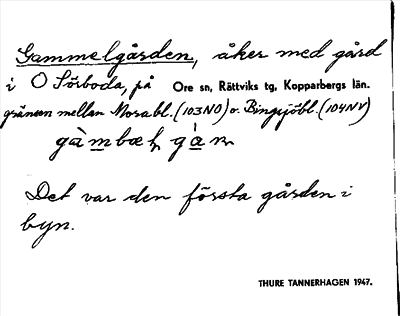 Gammelgården, åker med gård
i O Sörboda, på Ore sn, Rättviks tg, Kopparbergs län.
gränsen mellan Morabl. (103NO) o. Bingsjöbl. (104NV)
Det var den första gården i
byn.
THURE TANNERHAGEN 1947.